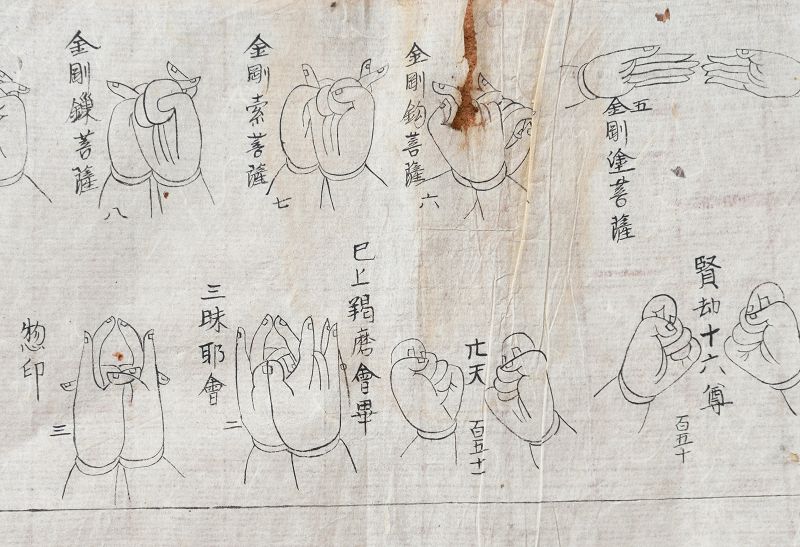 五
金剛塗菩薩
六
金剛鈎菩薩
七
金剛索菩薩
八
金剛鏁菩薩
賢劫十六尊
百五十
天
百五十一
已上羯磨會畢
三昧耶會
二
惣印
三